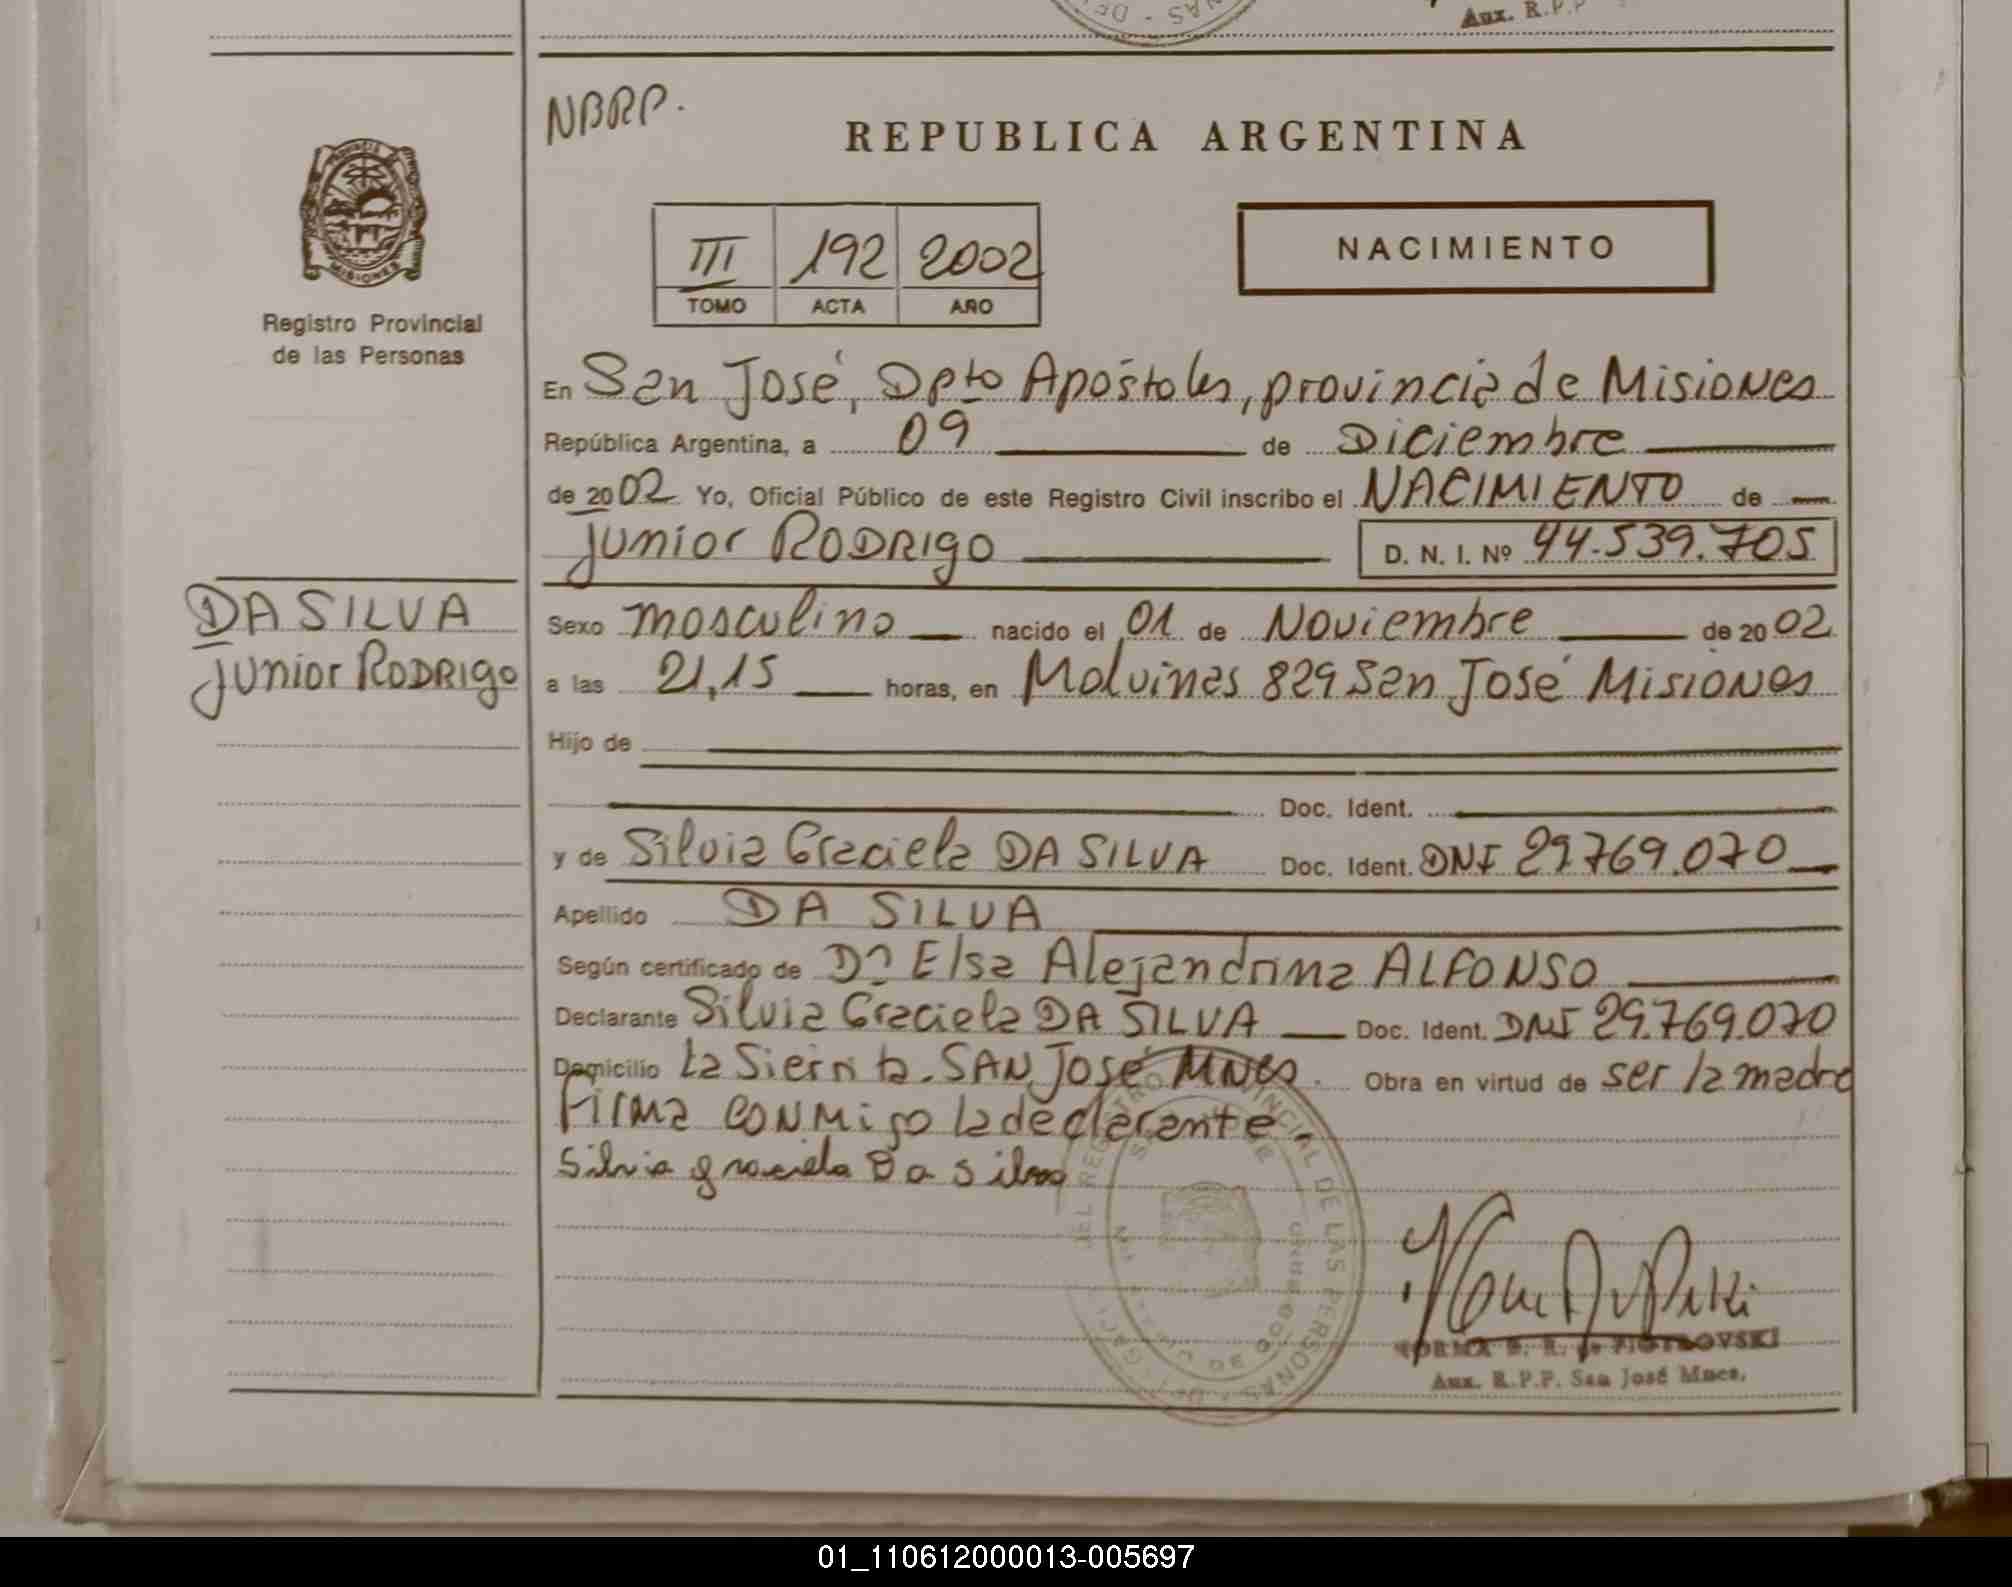 Aux. R.P.P
NBRP.
REPUBLICA ARGENTINA
PROVINCIA DE
MISIONES
Registro Provincial
de las Personas
III 192 2002
TOMO ACTA AÑO
NACIMIENTO
En San José, Dpto Apóstoles, provincia de Misiones
República Argentina, a 09 de Diciembre
de 2002 Yo, Oficial Público de este Registro Civil inscribo el NACIMIENTO de
Junior RODRIGO D. N. I. Nº 44.539.705
DA SILVA
Junior RODRIGO
Sexo masculino nacido el 01 de Noviembre de 2002
a las 21,15 horas, en Malvinas 829 San José Misiones
Hijo de
Doc. Ident.
y de Silvia Graciela DA SILVA Doc. Ident. DNI 29.769.070
Apellido DA SILVA
Según certificado de Dª Elsa Alejandrina ALFONSO
Declarante Silvia Graciela DA SILVA Doc. Ident. DNI 29.769.070
Domicilio La Sierrita. SAN José Mnes. Obra en virtud de ser la madre
Firma conmigo la declarante.
Silvia graciela Da silva
DEL REGISTRO PROVINCIAL DE LAS PERSONAS
NORMA B. R. de PIOTROVSKI
Aux. R.P.P. San José Mnes.
01_110612000013-005697